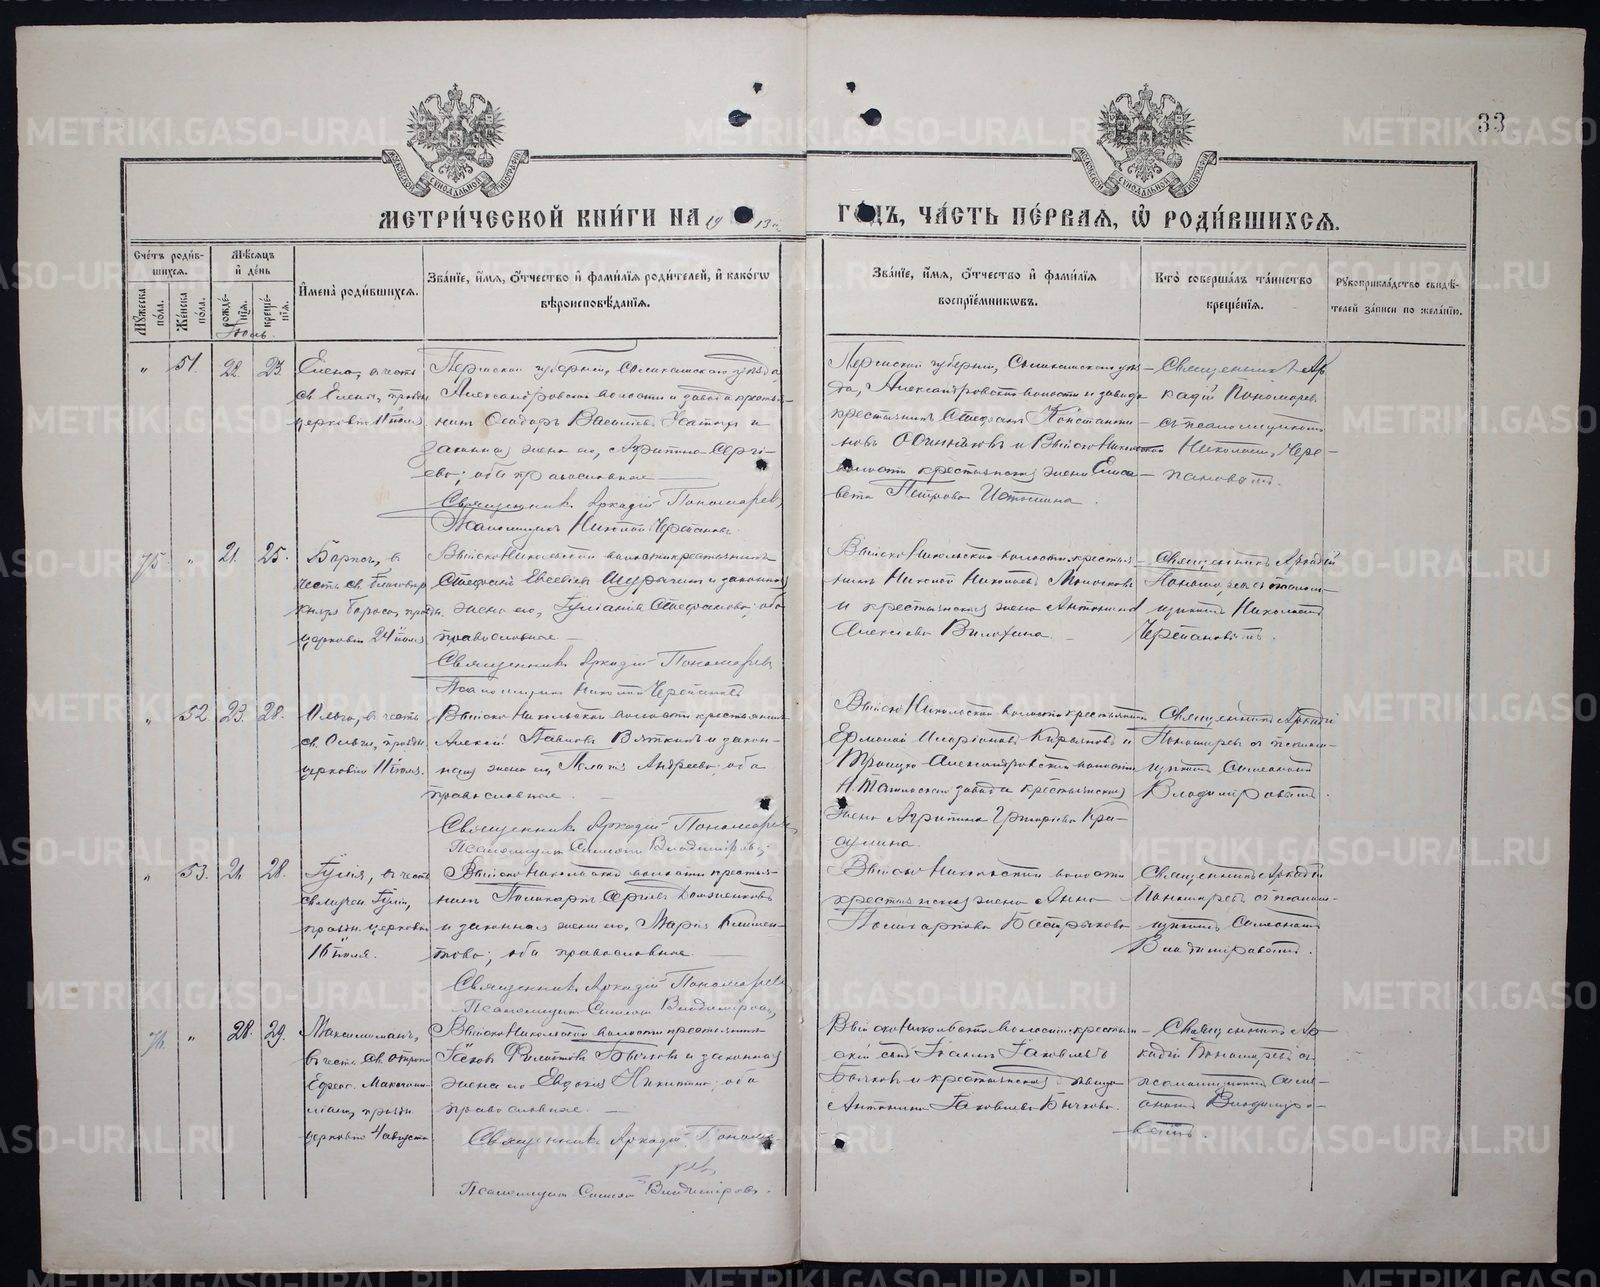 33
МЕТРИ́ЧЕСКОЙ КНИ́ГИ НА 1913 г. ГОДЪ, ЧА́СТЬ ПЕ́РВАЯ, Ѡ҆ РОДИ́ВШИХСЯ.
Сче́тъ роди́вшихся.
Мѣ́сяцъ и҆ де́нь
И҆мена̀ роди́вшихся.
Зва́нїе, и҆́мя, ѻ҆́тчество и҆ фами́лїя роди́телей, и҆ како́гѡ
вѣроисповѣ́данїя.
Зва́нїе, и҆́мя, ѻ҆́тчество и҆ фами́лїя
воспрїе́мникѡвъ.
Кто̀ соверша́лъ та́инство
креще́нїя.
Рꙋкоприкла́дство свидѣ́телей за́писи по жела́нїю.
Мꙋ́жеска по́ла.
Же́нска по́ла.
рожде́нїя.
креще́нїя.
Іюль.
" 51. 22. 23.
Елена, в честь
св. Елены, праздн.
церковію 11 іюля
Пермской губерніи, Соликамскаго уѣзда,
Александровской волости и завода крестья-
нинъ
законная жена его, Агрипина Сергі-
ева; оба православные
Священникъ Аркадій Пономаревъ
Псаломщикъ Николай Черепановъ
Пермской губерніи, Соликамскаго уѣз-
да, Александровской волости и завода
крестьянинъ Стефанъ Константи-
новъ Одинцовъ и Выйско-Никольской
волости крестьянская жена Елиса-
вета Петрова
Священникъ Ар-
кадій Пономаревъ
съ псаломщикомъ
Николаемъ Чере-
пановымъ.
75 " 21. 25.
Борисъ, в
честь св. благовѣр.
князя Бориса, праздн.
церковію 24 іюля
Выйско-Никольской волости крестьянинъ
Стефанъ Евсеевъ и законная
жена его, Іуліанія Стефанова; оба
православные
Священникъ Аркадій Пономаревъ
Псаломщикъ Николай Черепановъ
Выйско-Никольской волости крестья-
нинъ Николай Николаевъ
и крестьянская жена Антонина
Алексѣева Вилохина.
Священникъ Аркадій
Пономаревъ съ псалом-
щикомъ Николаемъ
Черепановымъ.
" 52. 23. 28.
Ольга, в честь
св. Ольги, праздн.
церковію 11 іюля.
Выйско-Никольской волости крестьянинъ
Алексій Павловъ Вяткинъ и закон-
ная жена его Андреева оба
православные.
Священникъ Аркадій Пономаревъ
Псаломщикъ Симеонъ Владиміровъ
Выйско-Никольской волости крестьянинъ
Иларіоновъ и
Троицко-Александровской волости
Н. Тагильскаго завода крестьянская
жена Агрипина Григоріева
Священникъ Аркадій
Пономаревъ съ псалом-
щикомъ Симеономъ
Владиміровымъ.
" 53. 21. 28.
Іулія, в честь
св. мучен. Іуліи,
праздн. церковію
16 іюля.
Выйско-Никольской волости крестья-
нинъ Поликарпъ Сергіевъ
и законная жена его, Марія Климен-
това; оба православные.
Священникъ Аркадій Пономаревъ
Псаломщикъ Симеонъ Владиміровъ
Выйско-Никольской волости
крестьянская жена Анна
Поликарпова
Священникъ Аркадій
Пономаревъ съ псалом-
щикомъ Симеономъ
Владиміровымъ.
76. " 28. 29.
Максиміліанъ,
в честь св. отрока
Ефес. Максими-
ліана, праздн.
церковію 4 августа
Выйско-Никольской волости крестьянинъ
Іаковъ Филиповъ Бычковъ и законная
жена его Евдокія Никитина; оба
православные.
Священникъ Аркадій Понома-
ревъ
Псаломщикъ Симеонъ Владиміровъ.
Выйско-Никольской волости крестьян-
скій сынъ Іоаннъ Іаковлевъ
Бычковъ и крестьянская дѣвица
Антонина Іаковлева Бычкова.
Священникъ Ар-
кадій Пономаревъ съ
псаломщикомъ Симе-
ономъ Владиміро-
вымъ.
METRIKI.GASO-URAL.RU